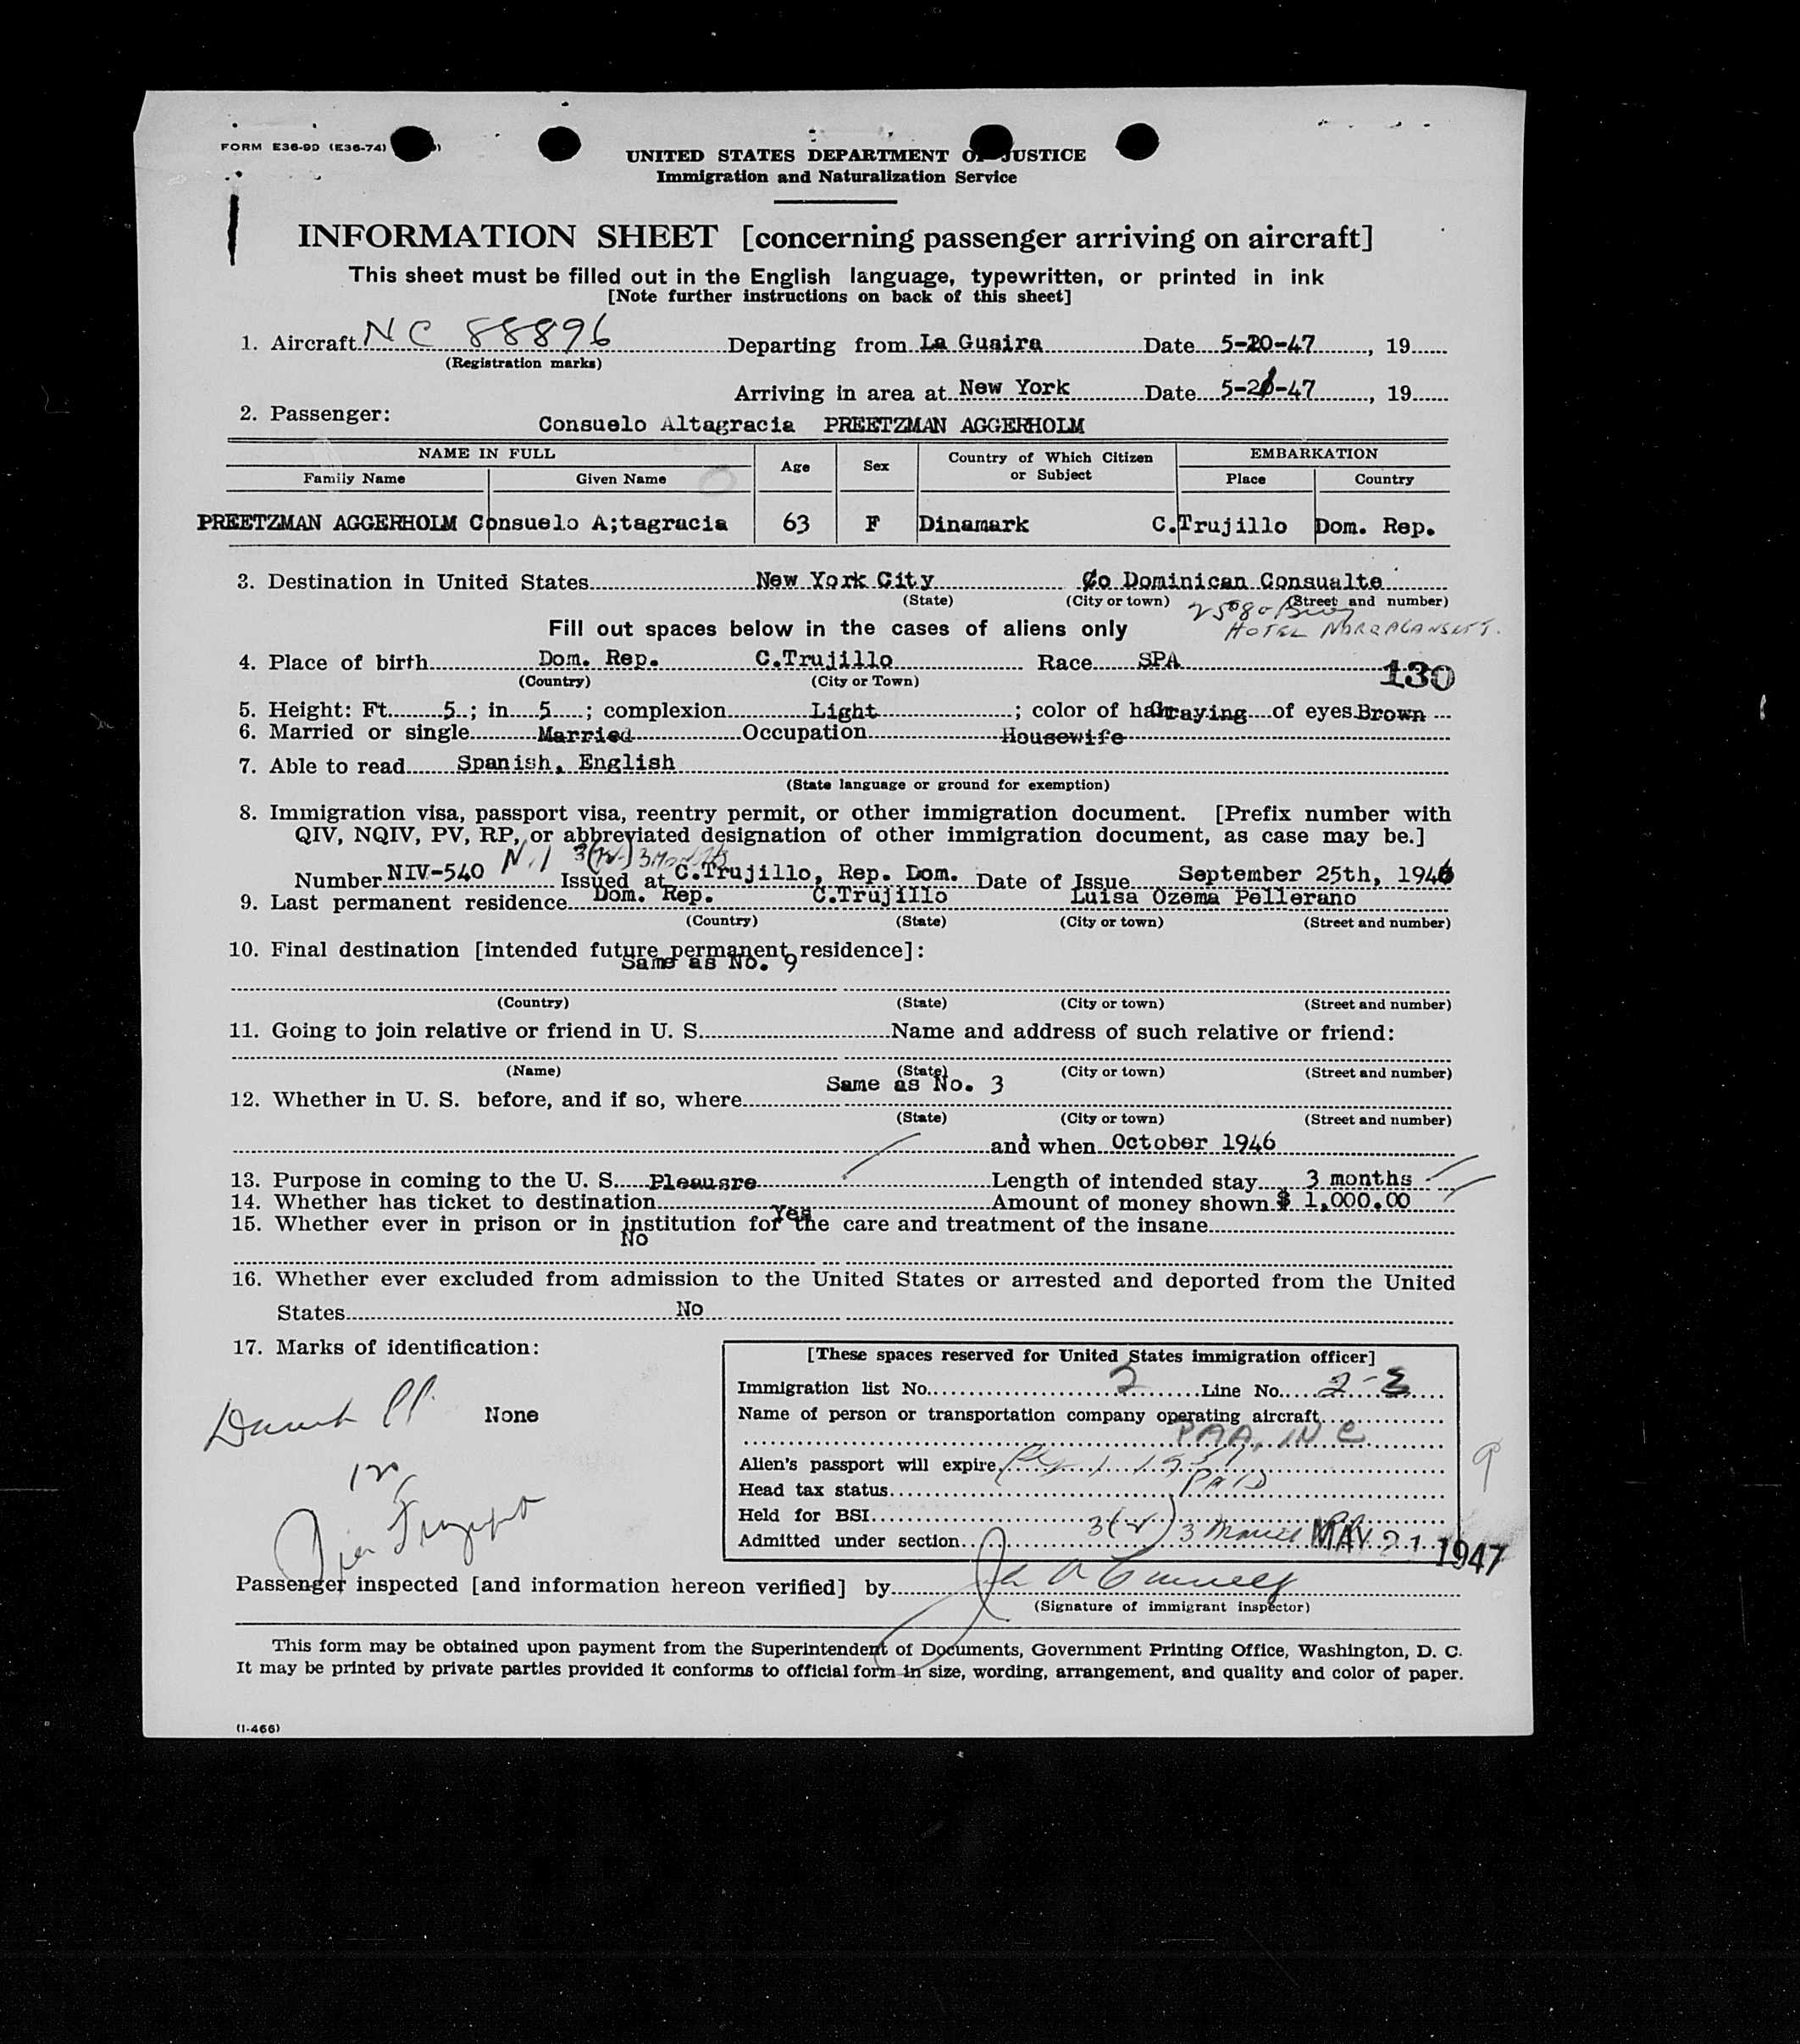 FORM E36-9D (E36-74)
UNITED STATES DEPARTMENT OF JUSTICE
Immigration and Naturalization Service
INFORMATION SHEET [concerning passenger arriving on aircraft]
This sheet must be filled out in the English language, typewritten, or printed in ink
[Note further instructions on back of this sheet]
1. Aircraft NC 88896 Departing from La Guaira Date 5-20-47, 19
(Registration marks)
Arriving in area at New York Date 5-21-47, 19
2. Passenger:
Consuelo Altagracia PREETZMAN AGGERHOLM
NAME IN FULL Age Sex Country of Which Citizen or Subject EMBARKATION
Family Name Given Name Place Country
PREETZMAN AGGERHOLM Consuelo A;tagracia 63 F Dinamark C.Trujillo Dom. Rep.
3. Destination in United States New York City c/o Dominican Consualte
(State) (City or town) (Street and number)
HOTEL NARRAGANSETT.
Fill out spaces below in the cases of aliens only
4. Place of birth Dom. Rep. C.Trujillo Race SPA
130
(Country) (City or Town)
5. Height: Ft. 5; in 5; complexion Light; color of hair Graying of eyes Brown
6. Married or single Married Occupation Housewife
7. Able to read Spanish, English
(State language or ground for exemption)
8. Immigration visa, passport visa, reentry permit, or other immigration document. [Prefix number with
QIV, NQIV, PV, RP, or abbreviated designation of other immigration document, as case may be.]
3 MONTHS
Number NIV-540 Issued at C.Trujillo, Rep. Dom. Date of Issue September 25th, 1946
9. Last permanent residence Dom. Rep. C.Trujillo Luisa Ozema Pellerano
(Country) (State) (City or town) (Street and number)
10. Final destination [intended future permanent residence]:
Same as No. 9
(Country) (State) (City or town) (Street and number)
11. Going to join relative or friend in U. S. Name and address of such relative or friend:
(Name) (State) (City or town) (Street and number)
Same as No. 3
12. Whether in U. S. before, and if so, where
(State) (City or town) (Street and number)
and when October 1946
13. Purpose in coming to the U. S. Pleausre Length of intended stay 3 months
14. Whether has ticket to destination Yes Amount of money shown $ 1,000.00
15. Whether ever in prison or in institution for the care and treatment of the insane
No
16. Whether ever excluded from admission to the United States or arrested and deported from the United
States No
17. Marks of identification:
None
[These spaces reserved for United States immigration officer]
Immigration list No. 2 Line No. 2-3
Name of person or transportation company operating aircraft
PAA, INC
Alien's passport will expire
Head tax status PAID
Held for BSI
Admitted under section MAY 21 1947
Passenger inspected [and information hereon verified] by
(Signature of immigrant inspector)
This form may be obtained upon payment from the Superintendent of Documents, Government Printing Office, Washington, D. C.
It may be printed by private parties provided it conforms to official form in size, wording, arrangement, and quality and color of paper.
(I-466)